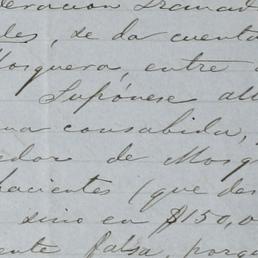 deracion Granad
les, se da cuenta
Mosquera, entre
Supónese all
una consabida,
dor de Mosq
hacientes (que des
sino en $150,0
ente falsa, porq